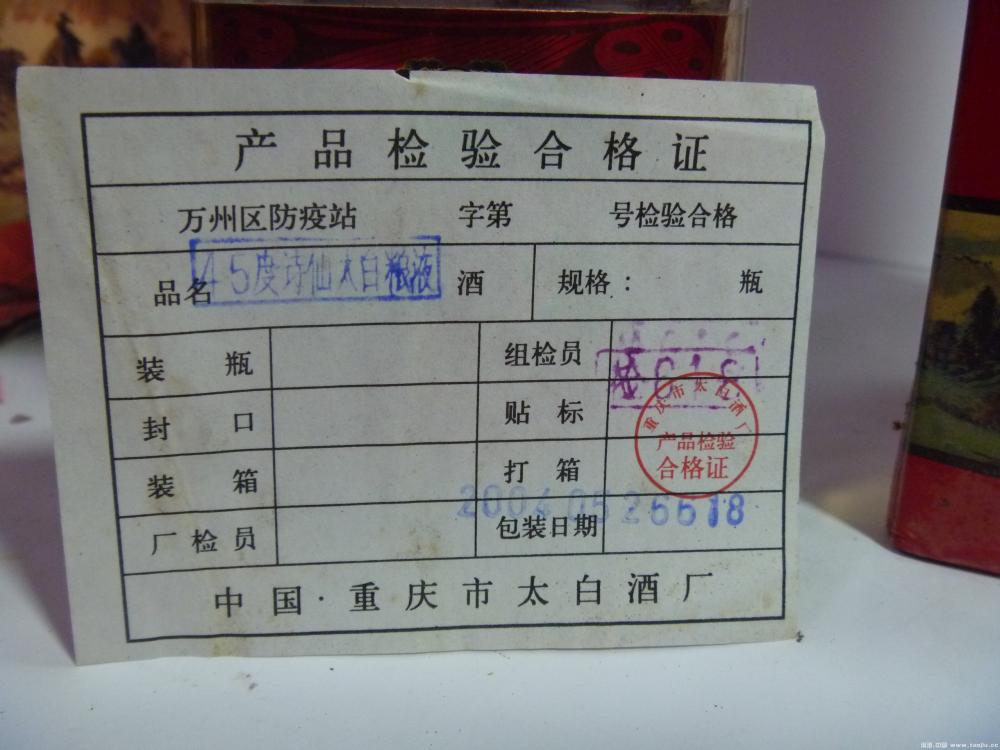 产品检验合格证
万州区防疫站 字第 号检验合格
品名 45度诗仙太白粮液 酒 规格： 瓶
装瓶 组检员
封口 贴标
装箱 打箱
厂检员 包装日期 2004 05 266618
重庆市太白酒厂
产品检验
合格证
中国·重庆市太白酒厂